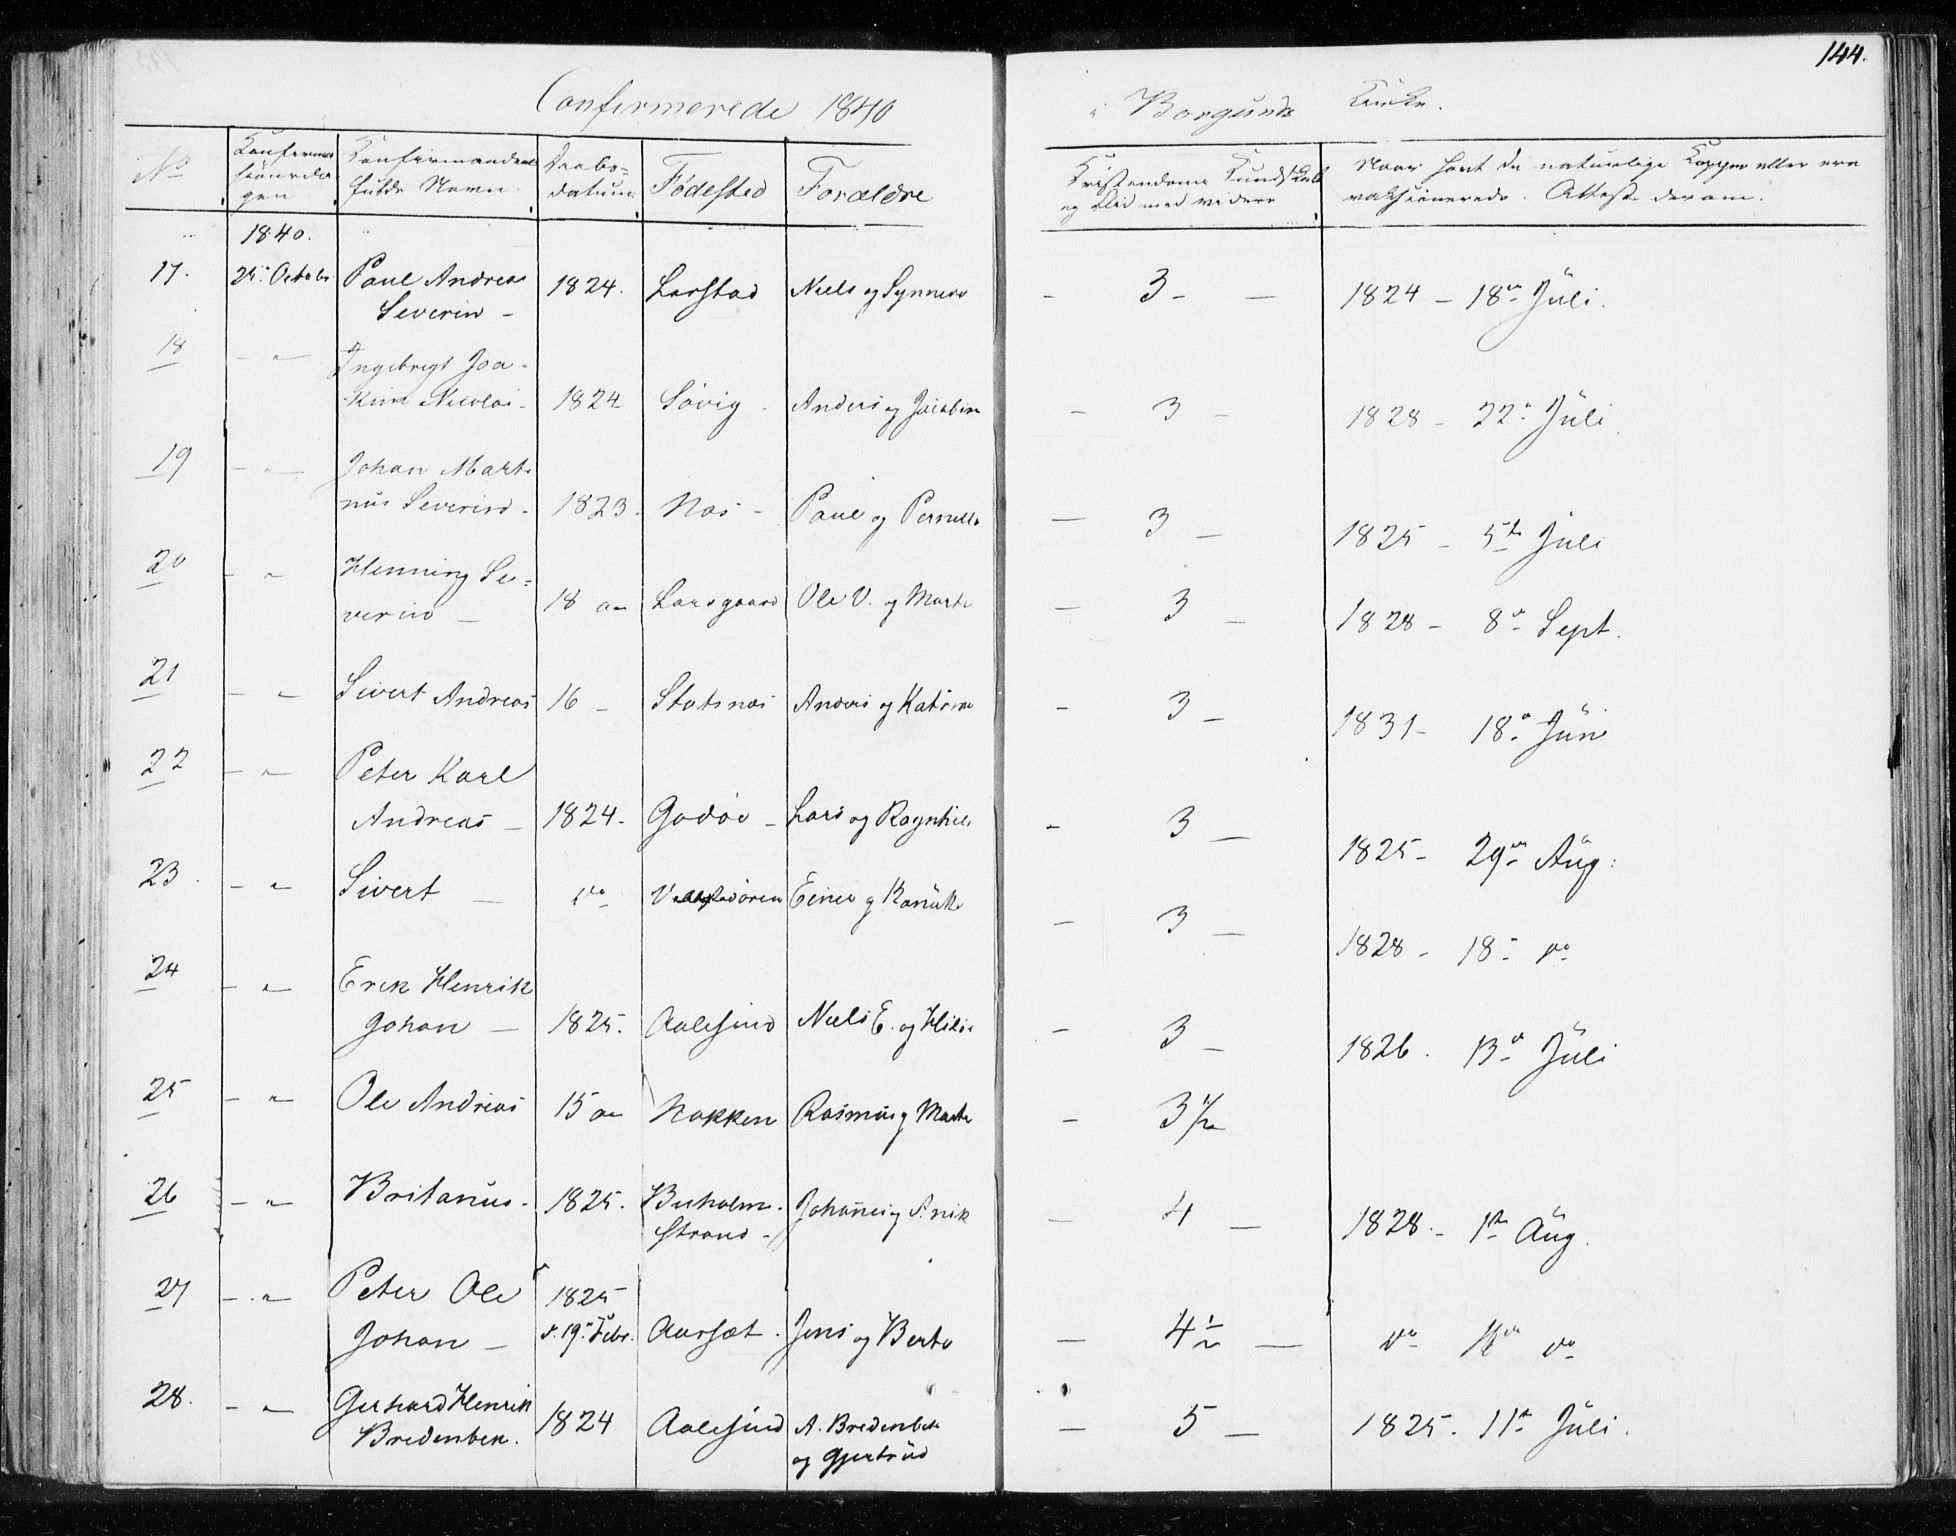 144.
Confirmerede 1840 i Borgunds Kirke.
No
Konfirma-
tionsda-
gen
Konfirmandens
fulde Navn.
Daabs-
datum.
Fødested
Forældre
Kristendoms Kundskab
og Flid med videre
Naar havt de naturlige Kopper eller ere
vaksinerede. Attest derom.
1840.
17. 25. Octobr. Paul Andreas 1824. Larstad Niels og Synneve - 3 - - 1824 - 18de Juli.
Severin -
18 - " - Ingebrigt Joa-
kim Nicolai - 1824 - Søvig - Anders og Jacobine - 3 - 1828 - 22. Juli
19 - " - Johan Marti
nus Severin - 1823. Næs - Paul og Pernelle - 3 - 1825 - 5te Juli
20 - " Henning Se-
verin - 18 aar Larsgaard Ole V. og Marte - 3 - 1828 - 8de Sept.
21 - " - Sivert Andreas 16 - Slatsnæs Anders og Katrine - 3 - 1831 - 18. Juni
22 - " - Peter Karl
Andreas - 1824 - Godøe - Lars og Ragnhild - 3 - 1825 - 29de Aug:
23. - " - Sivert - do Einer og - 3 - 1828 - 18 - do
24 - " - Erik Henrik
Johan - 1825. Aalesund Niels E. og - 3 - 1826. 13de Juli
25 - " - Ole Andreas 15 aar Nakken Rasmus og Marte - 3 1/2
26 - " - Britanus - 1825. Buholm- Johannes og Anik - 4 - 1828 - 1te Aug.
Strand -
27 - " - Peter Ole 1825
Johan - d. 19. Febr. Aarsæt. Jens og Berte - 4 1/2 - do do
28. - " - Gerhard Henrik 1824 Aalesund A. Bredenbek - 5 - 1825. 11te Juli.
Bredenbek. og Gjertrud